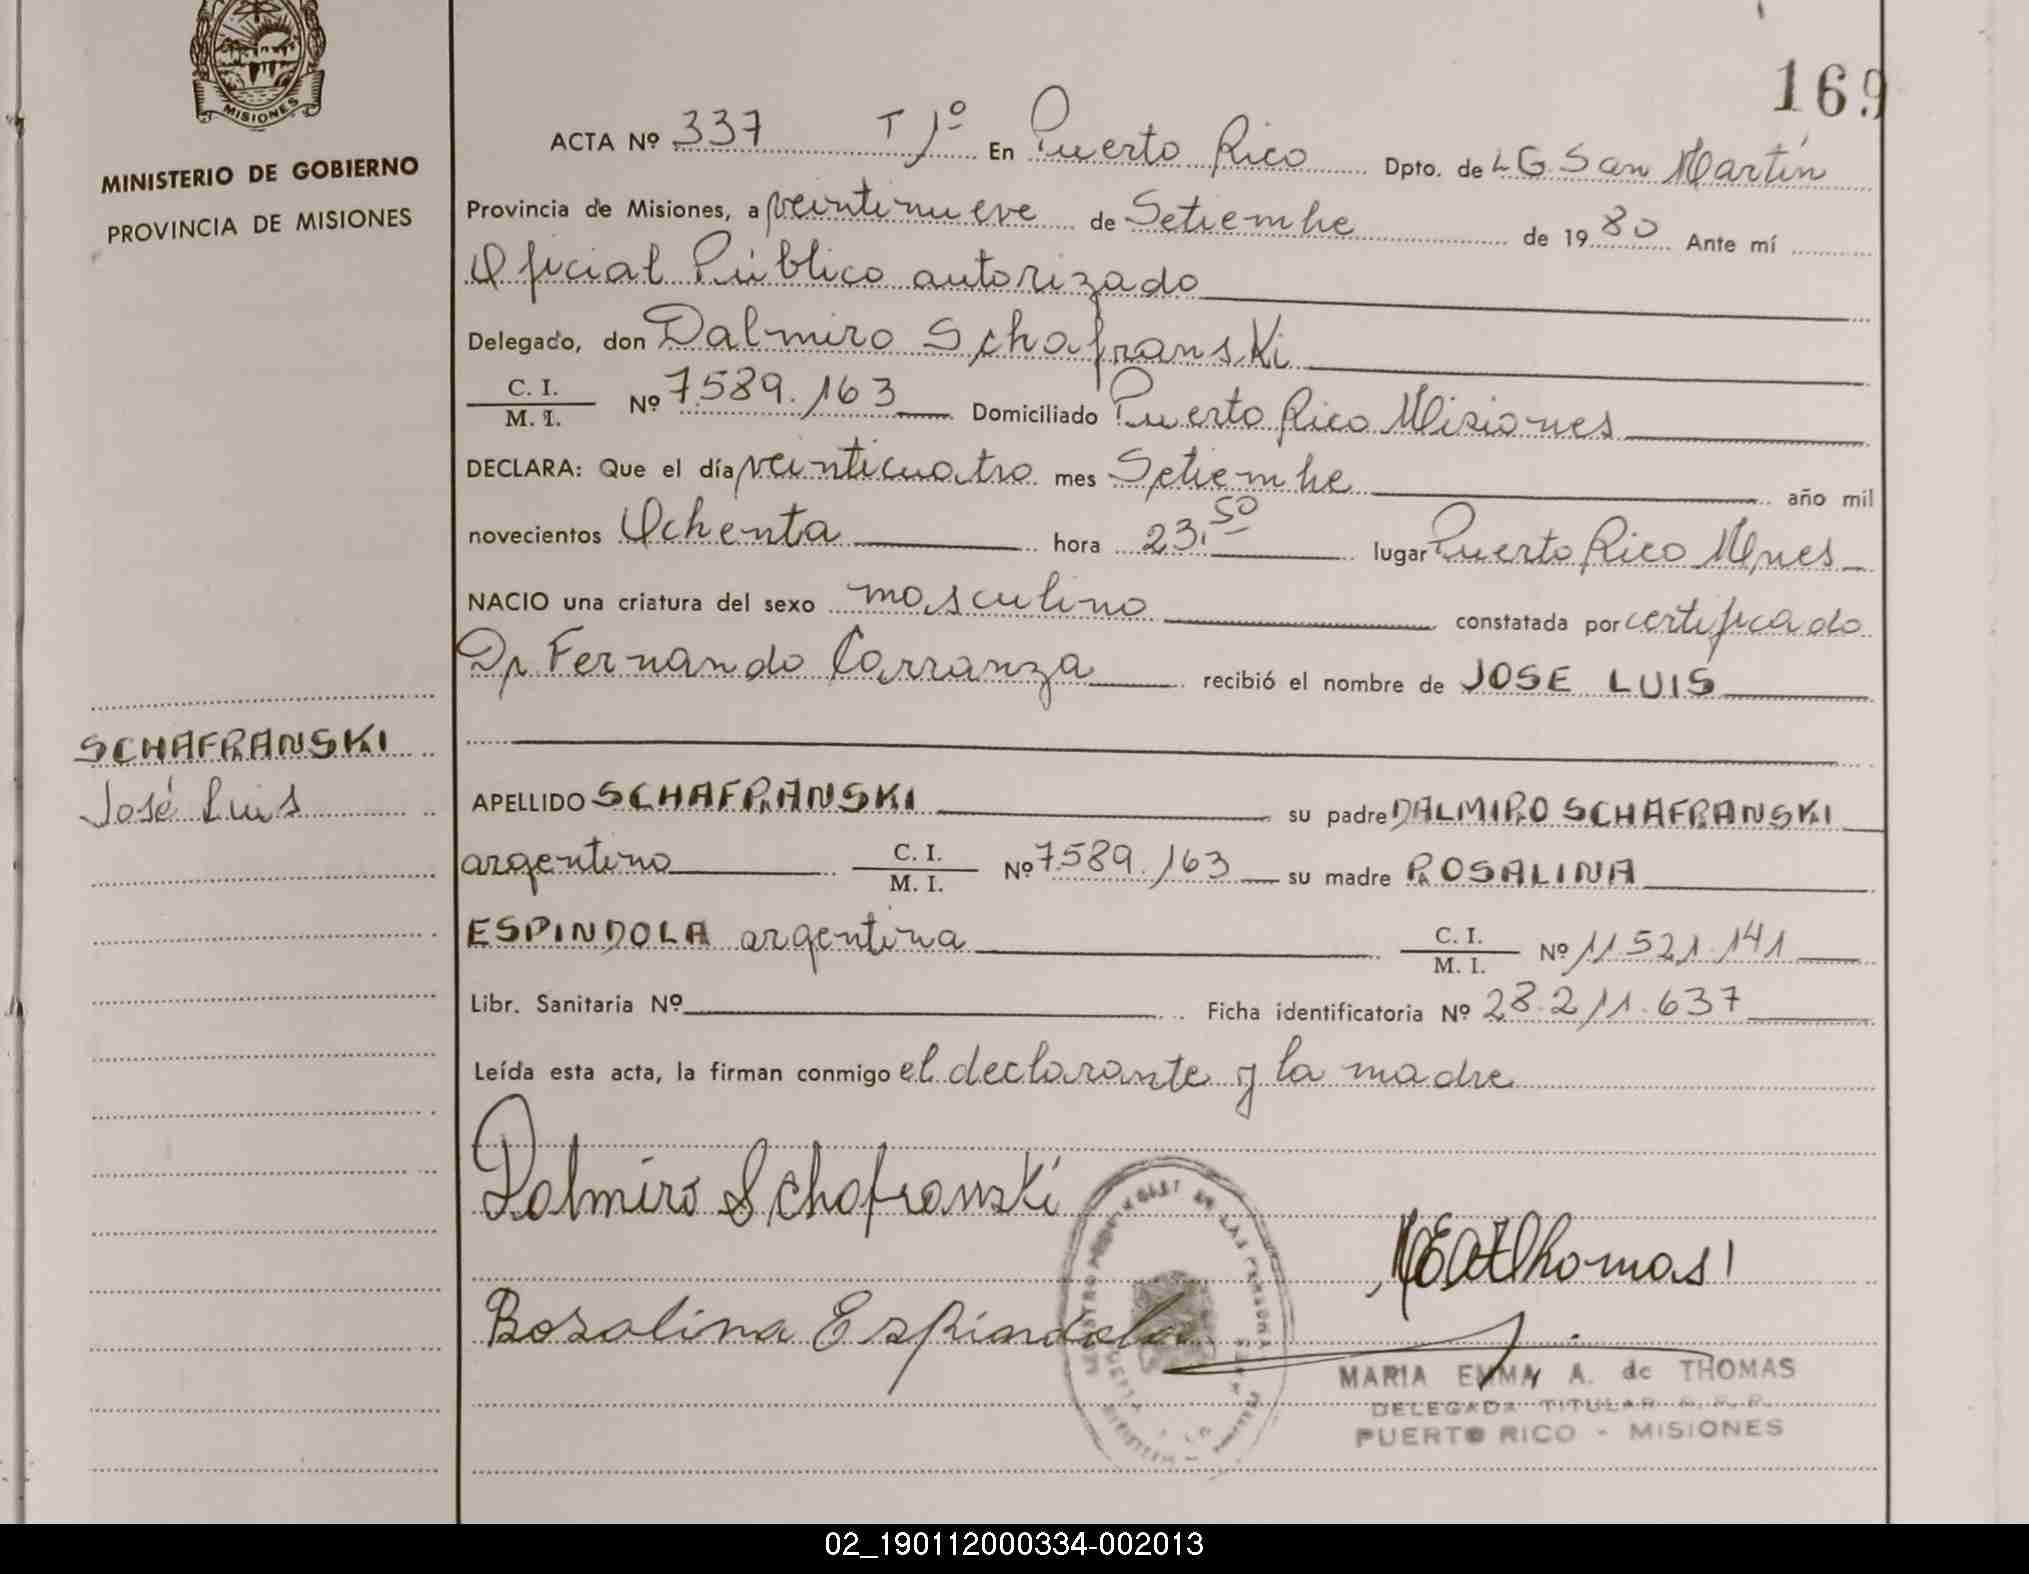 169
MISIONES
MINISTERIO DE GOBIERNO
PROVINCIA DE MISIONES
SCHAFRANSKI
José Luis
ACTA Nº 337 T 1º En Puerto Rico Dpto. de LG. San Martín
Provincia de Misiones, a veintinueve de Setiembre de 1980 Ante mí
Oficial Público autorizado
Delegado, don Dalmiro Schafranski
C. I.
M. I. Nº 7.589.163 Domiciliado Puerto Rico Misiones
DECLARA: Que el día veinticuatro mes Setiembre año mil
novecientos Ochenta hora 23,50 lugar Puerto Rico Mnes
NACIO una criatura del sexo masculino constatada por certificado
Dr Fernando Carranza recibió el nombre de JOSE LUIS
APELLIDO SCHAFRANSKI su padre DALMIRO SCHAFRANSKI
argentino C. I.
M. I. Nº 7.589.163 su madre ROSALINA
ESPINDOLA argentina C. I.
M. I. Nº 11.521.141
Libr. Sanitaria Nº Ficha identificatoria Nº 28.211.637
Leída esta acta, la firman conmigo el declarante y la madre
Dalmiro Schafranski
MEAdThomas
Rosalina Espíndola
MARIA EMMA A. de THOMAS
DELEGADA TITULAR R. P. P.
PUERTO RICO - MISIONES
02_190112000334-002013